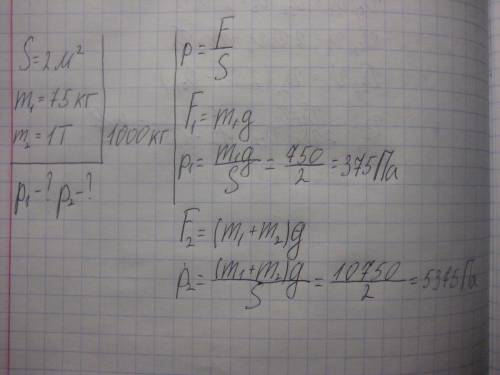 S=2м²
m₁=75кг
m₂=1Т 1000кг
p₁-? p₂-?
p=F/S
F₁=m₁g
p₁=m₁g/S=750/2=375Па
F₂=(m₁+m₂)g
p₂=(m₁+m₂)g/S=10750/2=5375Па